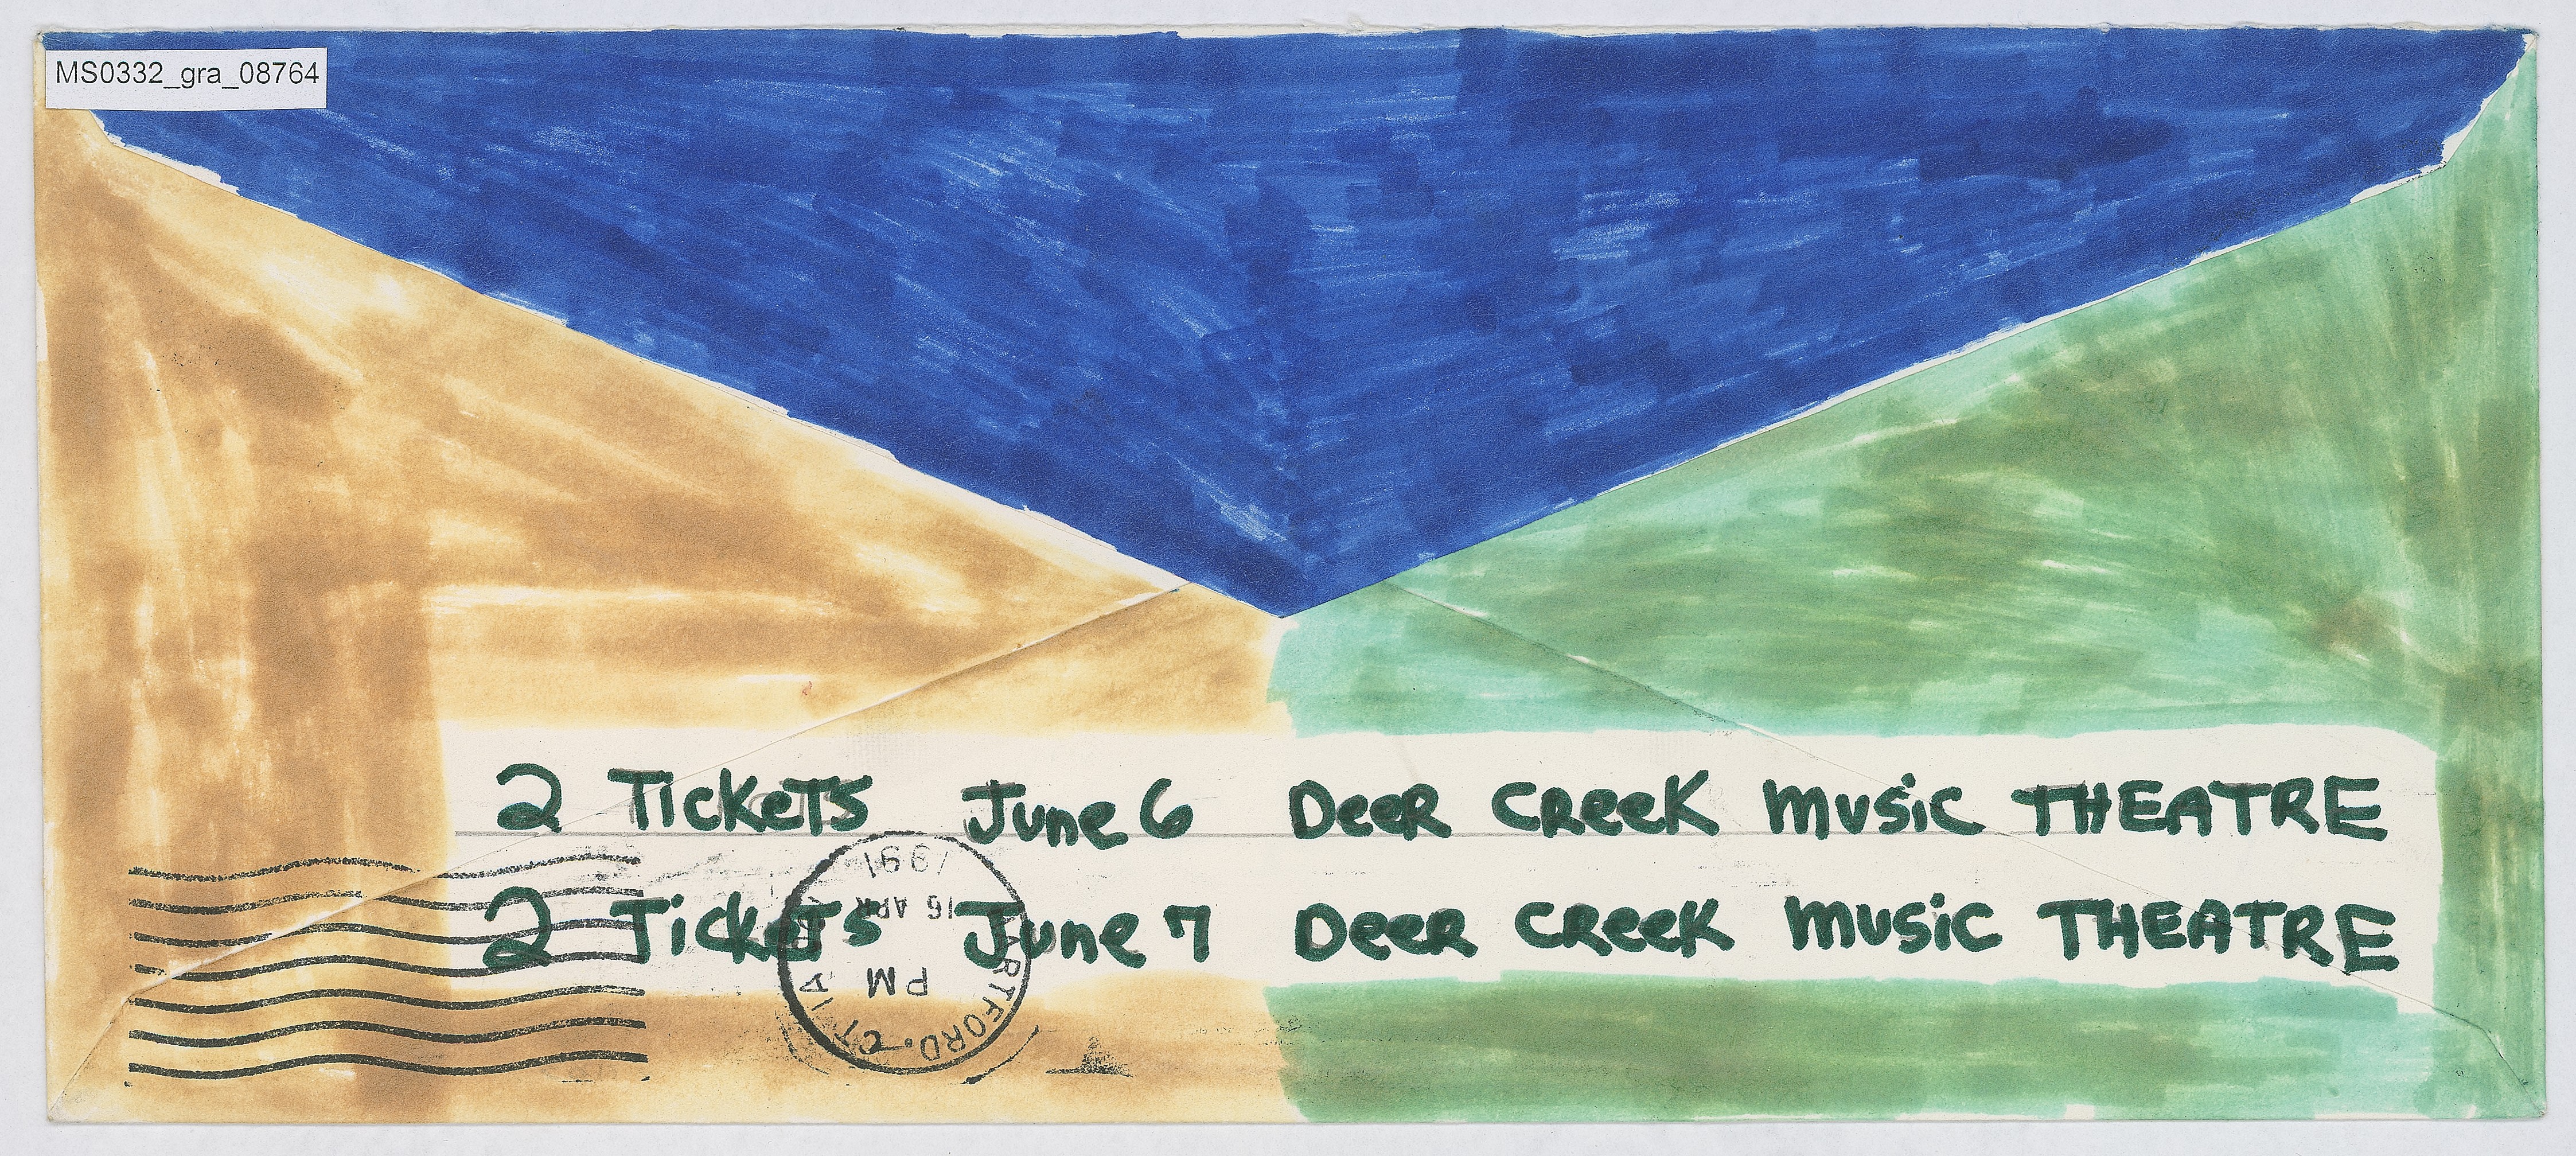 MS0332_gra_08764
2 Tickets June 6 Deer Creek Music THEATRE
2 Tickets June 7 Deer Creek Music THEATRE
HARTFORD, CT
PM
16 APR
1991